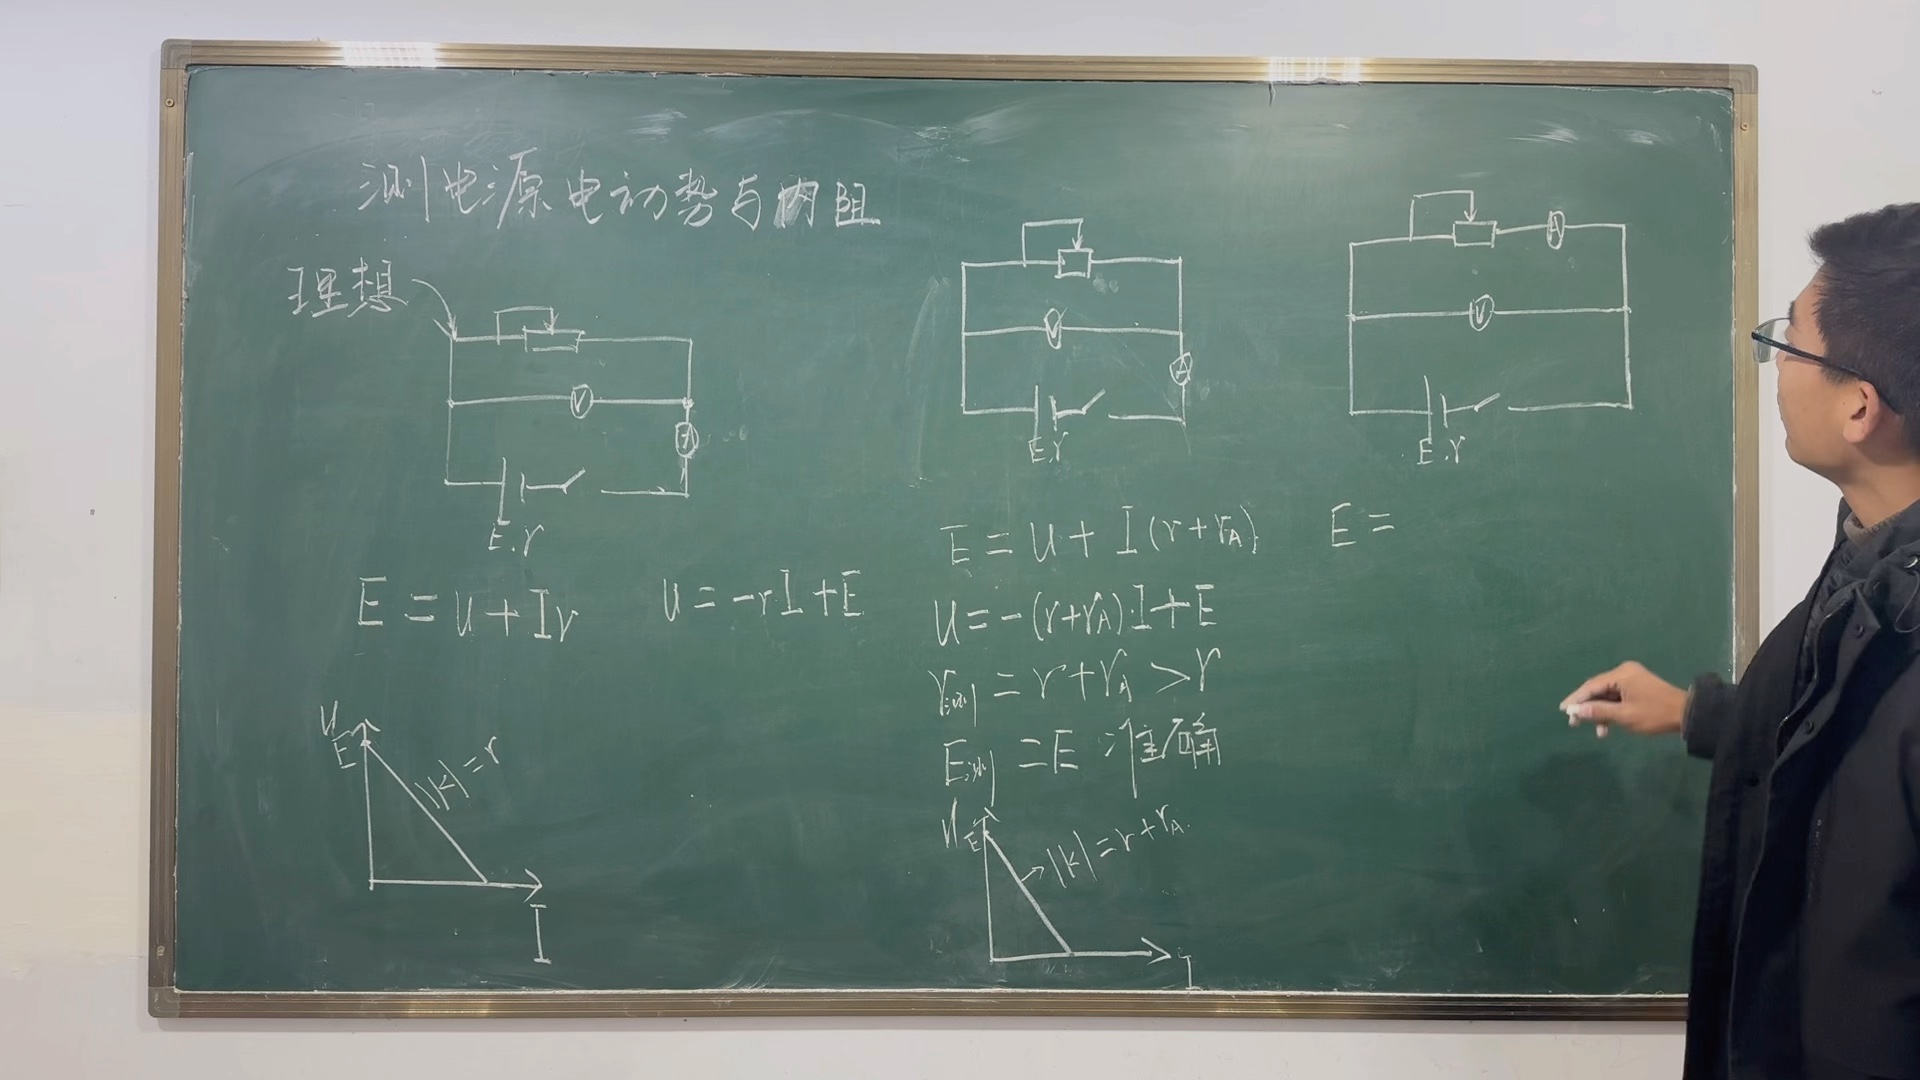 测电源电动势与内阻
理想
V
A
E.r
E = U + Ir
U = -r.I + E
U
E
|k| = r
I
V
A
E.r
E = U + I(r + rA)
U = -(r + rA).I + E
r测 = r + rA > r
E测 = E 准确
U
E
|k| = r + rA.
I
A
V
E.r
E =